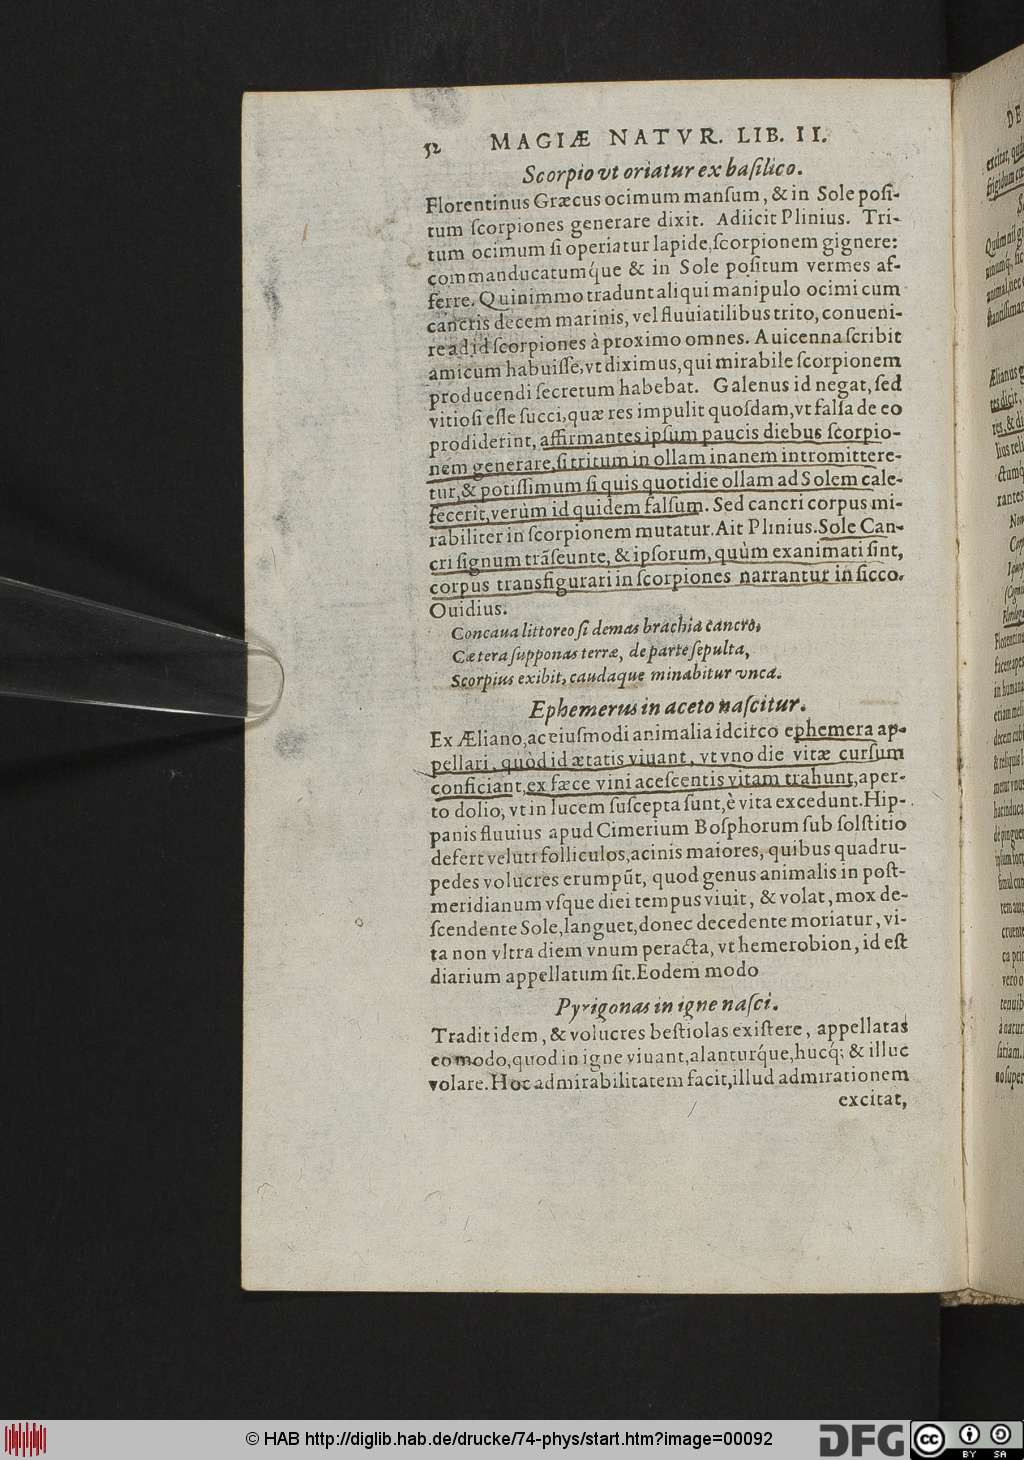 52 MAGIÆ NATVR. LIB. II.
Scorpio vt oriatur ex baſilico.
Florentinus Græcus ocimum manſum, & in Sole poſi-
tum ſcorpiones generare dixit. Adiicit Plinius. Tri-
tum ocimum ſi operiatur lapide, ſcorpionem gignere:
commanducatumq́ue & in Sole poſitum vermes af-
ferre. Quinimmo tradunt aliqui manipulo ocimi cum
cancris decem marinis, vel fluuiatilibus trito, conueni-
re ad id ſcorpiones à proximo omnes. Auicenna ſcribit
amicum habuiſſe, vt diximus, qui mirabile ſcorpionem
producendi ſecretum habebat. Galenus id negat, ſed
vitioſi eſſe ſucci, quæ res impulit quoſdam, vt falſa de eo
prodiderint, affirmantes ipſum paucis diebus ſcorpio-
nem generare, ſi tritum in ollam inanem intromittere-
tur, & potiſſimum ſi quis quotidie ollam ad Solem cale-
fecerit, verùm id quidem falſum. Sed cancri corpus mi-
rabiliter in ſcorpionem mutatur. Ait Plinius. Sole Can-
cri ſignum trãſeunte, & ipſorum, quùm exanimati ſint,
corpus transfigurari in ſcorpiones narrantur in ſicco.
Ouidius.
Concaua littoreo ſi demas brachia cancro,
Cætera ſupponas terræ, de parte ſepulta,
Scorpius exibit, caudaque minabitur vnca.
Ephemerus in aceto naſcitur.
Ex Æliano, ac eiuſmodi animalia idcirco ephemera ap-
pellari, quòd id ætatis viuant, vt vno die vitæ curſum
conficiant, ex fæce vini aceſcentis vitam trahunt, aper-
to dolio, vt in lucem ſuſcepta ſunt, è vita excedunt. Hip-
panis fluuius apud Cimerium Boſphorum ſub ſolſtitio
defert veluti folliculos, acinis maiores, quibus quadru-
pedes volucres erumpũt, quod genus animalis in poſt-
meridianum vſque diei tempus viuit, & volat, mox de-
ſcendente Sole, languet, donec decedente moriatur, vi-
ta non vltra diem vnum peracta, vt hemerobion, id eſt
diarium appellatum ſit. Eodem modo
Pyrigonas in igne naſci.
Tradit idem, & volucres beſtiolas exiſtere, appellatas
eo modo, quod in igne viuant, alanturq́ue, hucq́; & illuc
volare. Hoc admirabilitatem facit, illud admirationem
excitat,
© HAB http://diglib.hab.de/drucke/74-phys/start.htm?image=00092
DFG
cc BY SA